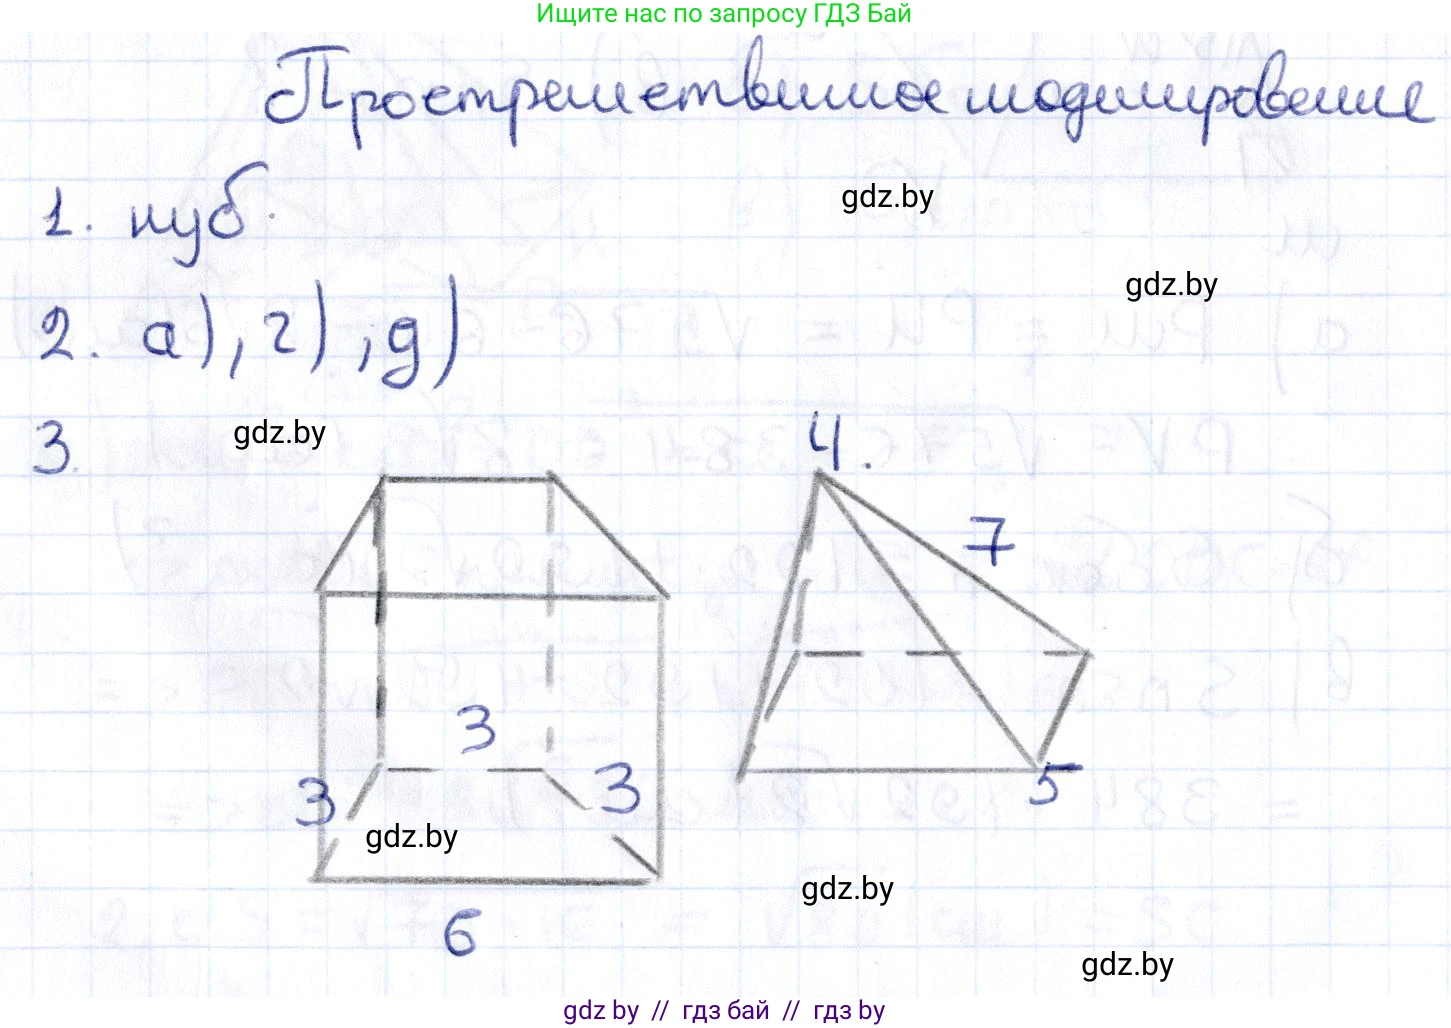 Ищите нас по запросу ГДЗ Бай
Пространственное моделирование
1. куб.
gdz.by
gdz.by
2. а), г), д)
3.
gdz.by
4.
7
3
3
3
5
gdz.by
gdz.by
6
gdz.by
gdz by // гдз бай // гдз by